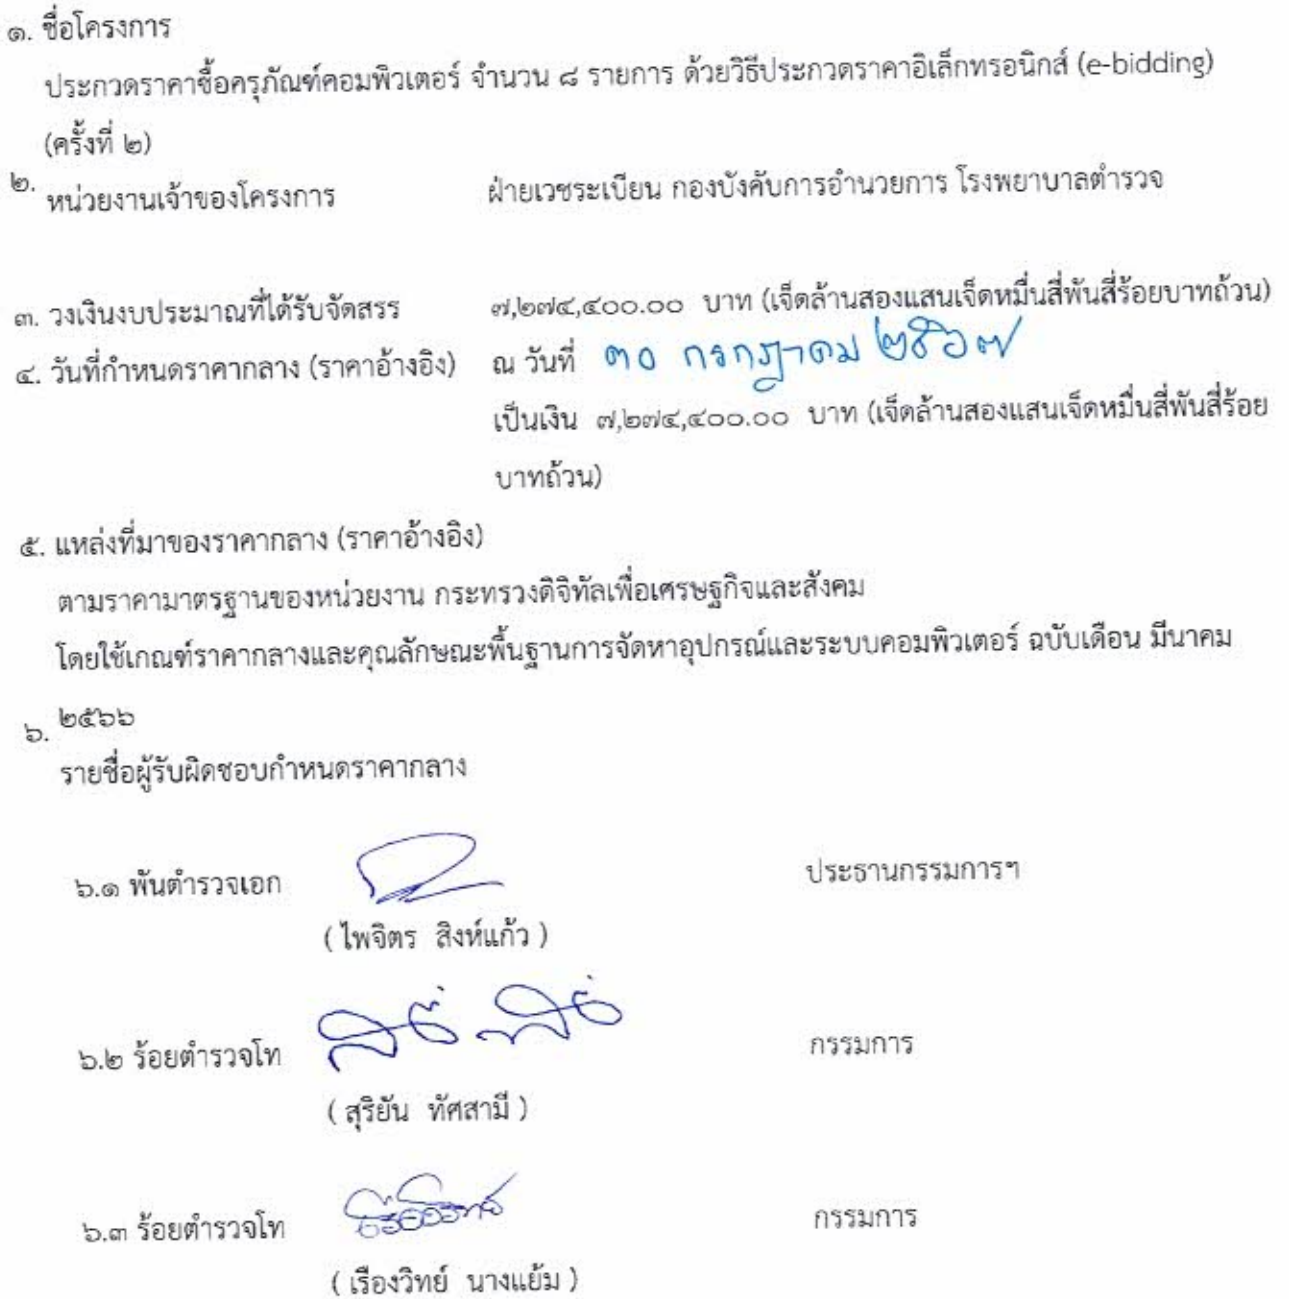 ๑. ชื่อโครงการ
ประกวดราคาซื้อครุภัณฑ์คอมพิวเตอร์ จำนวน ๘ รายการ ด้วยวิธีประกวดราคาอิเล็กทรอนิกส์ (e-bidding)
(ครั้งที่ ๒)
๒. หน่วยงานเจ้าของโครงการ ฝ่ายเวชระเบียน กองบังคับการอำนวยการ โรงพยาบาลตำรวจ
๓. วงเงินงบประมาณที่ได้รับจัดสรร ๗,๒๗๔,๔๐๐.๐๐ บาท (เจ็ดล้านสองแสนเจ็ดหมื่นสี่พันสี่ร้อยบาทถ้วน)
๔. วันที่กำหนดราคากลาง (ราคาอ้างอิง) ณ วันที่ ๓๐ กรกฎาคม ๒๕๖๗
เป็นเงิน ๗,๒๗๔,๔๐๐.๐๐ บาท (เจ็ดล้านสองแสนเจ็ดหมื่นสี่พันสี่ร้อย
บาทถ้วน)
๕. แหล่งที่มาของราคากลาง (ราคาอ้างอิง)
ตามราคามาตรฐานของหน่วยงาน กระทรวงดิจิทัลเพื่อเศรษฐกิจและสังคม
โดยใช้เกณฑ์ราคากลางและคุณลักษณะพื้นฐานการจัดหาอุปกรณ์และระบบคอมพิวเตอร์ ฉบับเดือน มีนาคม
๒๕๖๖
๖. รายชื่อผู้รับผิดชอบกำหนดราคากลาง
๖.๑ พันตำรวจเอก ประธานกรรมการฯ
( ไพจิตร สิงห์แก้ว )
๖.๒ ร้อยตำรวจโท กรรมการ
( สุริยัน ทัศสามี )
๖.๓ ร้อยตำรวจโท กรรมการ
( เรืองวิทย์ นางแย้ม )